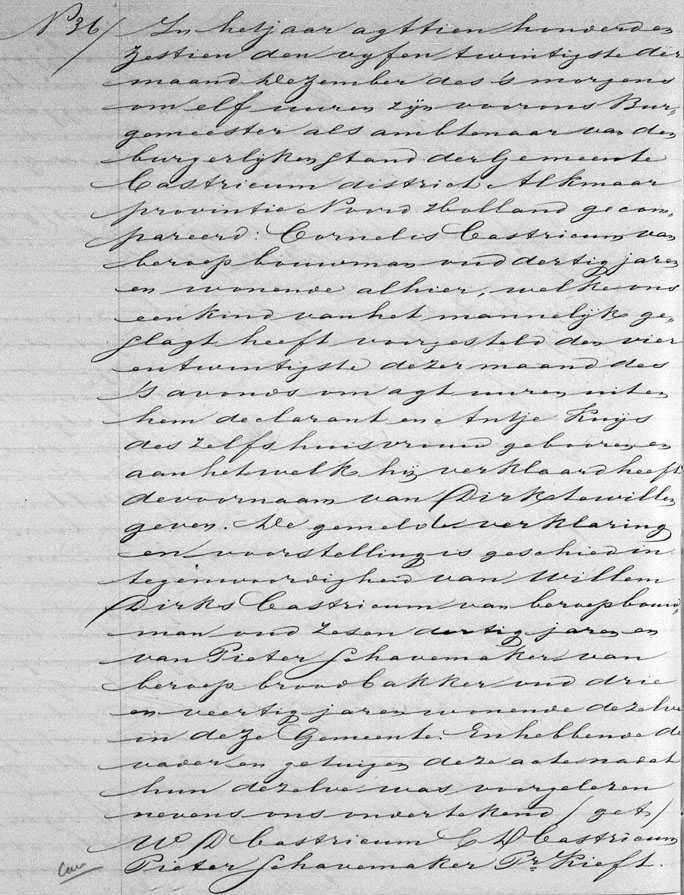 No 36/ In het jaar agttien honderd en
zestien den vyf en twintigste der
maand Dezember des 's morgens
om elf uuren zijn voor ons Bur-
gemeester als ambtenaar van den
burgerlijken stand der Gemeente
Castricum district Alkmaar
provintie Noord Holland gecom-
pareerd: Cornelis Castricum van
beroep bouwman oud dertig jaren
en wonende alhier, welke ons
een kind van het mannelijk ge-
slagt heeft voorgesteld den vier
en twintigste dezer maand des
's avonds om agt uuren uit en
hem declarant en Antje Kuijs
des zelfs huisvrouw gebooren en
aan het welk hij verklaard heeft
de voornaam van Dirk te willen
geven. De gemelde verklaring
en voorstelling is geschied in
tegenwoordigheid van Willem
Dirks Castricum van beroep bouw-
man oud zes en dertig jaren en
van Pieter Schavemaker van
beroep broodbakker oud drie
en veertig jaren wonende dezelve
in deze Gemeente. En hebbende de
vader en getuigen deze acte nadat
hun dezelve was voorgelezen
nevens ons ondertekend /get/
W D Castricum C D Castricum
Pieter Schavemaker Pr Kieft.